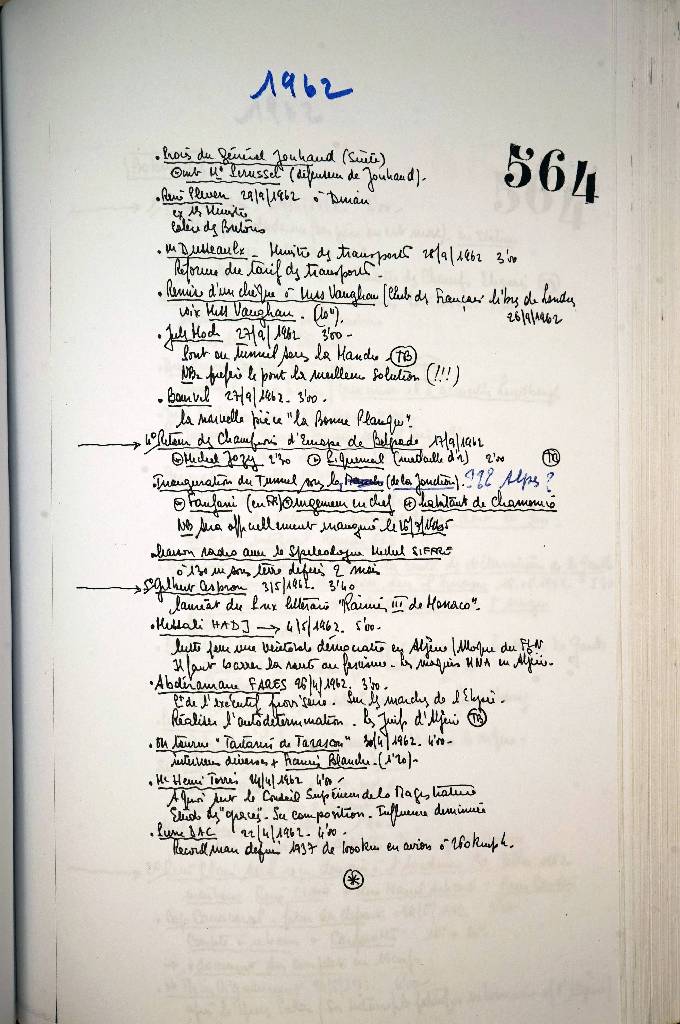 1962
564
• Procès du Général Jouhaud (suite)
Me Perussel (défenseur de Jouhaud).
• René Pleven 29/9/1962 à Dinan
ex 1er Ministre
• M Dusseaulx - Ministre des transports 28/9/1962 3'00
Réforme du tarif des transports.
• Remise d'un chèque à Miss Vaughan (Club des Français libres de Londres
voix Miss Vaughan. (10") 26/9/1962
• Jules Moch 27/9/1962 3'00 -
Pont ou tunnel sous la Manche (TB)
NB: préfère le pont la meilleure solution (!!!)
• 27/9/1962 - 3'00 -
la nouvelle pièce "la Bonne Planque".
4° Retour des Champions d'Europe de Belgrade 17/9/1962
Michel Jazy 2'30 (médaille d'or) 2'00 (TB)
• Inauguration du Tunnel sous les (de la Jonction). ??? Alpes ?
Fanfani (en FR) Ingénieur en chef + habitant de Chamonix
NB sera officiellement inauguré le
• Liaison radio avec le Spéléologue Michel SIFFRE
à 130 m sous terre depuis 2 mois
5° Gilbert Cesbron 3/5/1962 - 3'40
lauréat du Prix littéraire "Rainier III de Monaco".
• Messali HADJ → 4/5/1962 - 5'00 -
lutte pour une véritable démocratie en Algérie / Moque du FLN
Il faut barrer la route au fascisme - les maquis MNA en Algérie.
• Abderamane FARES 26/4/1962 - 3'30 -
Pt de l'exécutif provisoire. Sur les marches de l'Elysée -
Réaliser l'autodétermination. Les Juifs d'Algérie (TB)
• On tourne "Tartarin de Tarascon" 30/4/1962 - 4'00 -
interviews diverses + Francis Blanche - (1'20) -
• Me Henri Torrès 24/4/1962 4'00 -
A quoi sert le Conseil Supérieur de la Magistrature
Etude des "grâces" - Sa composition - Influence diminuée
• DAC 22/4/1962 - 4'00 -
Recordman depuis 1937 de 1000 kms en avion à 260 kmph.